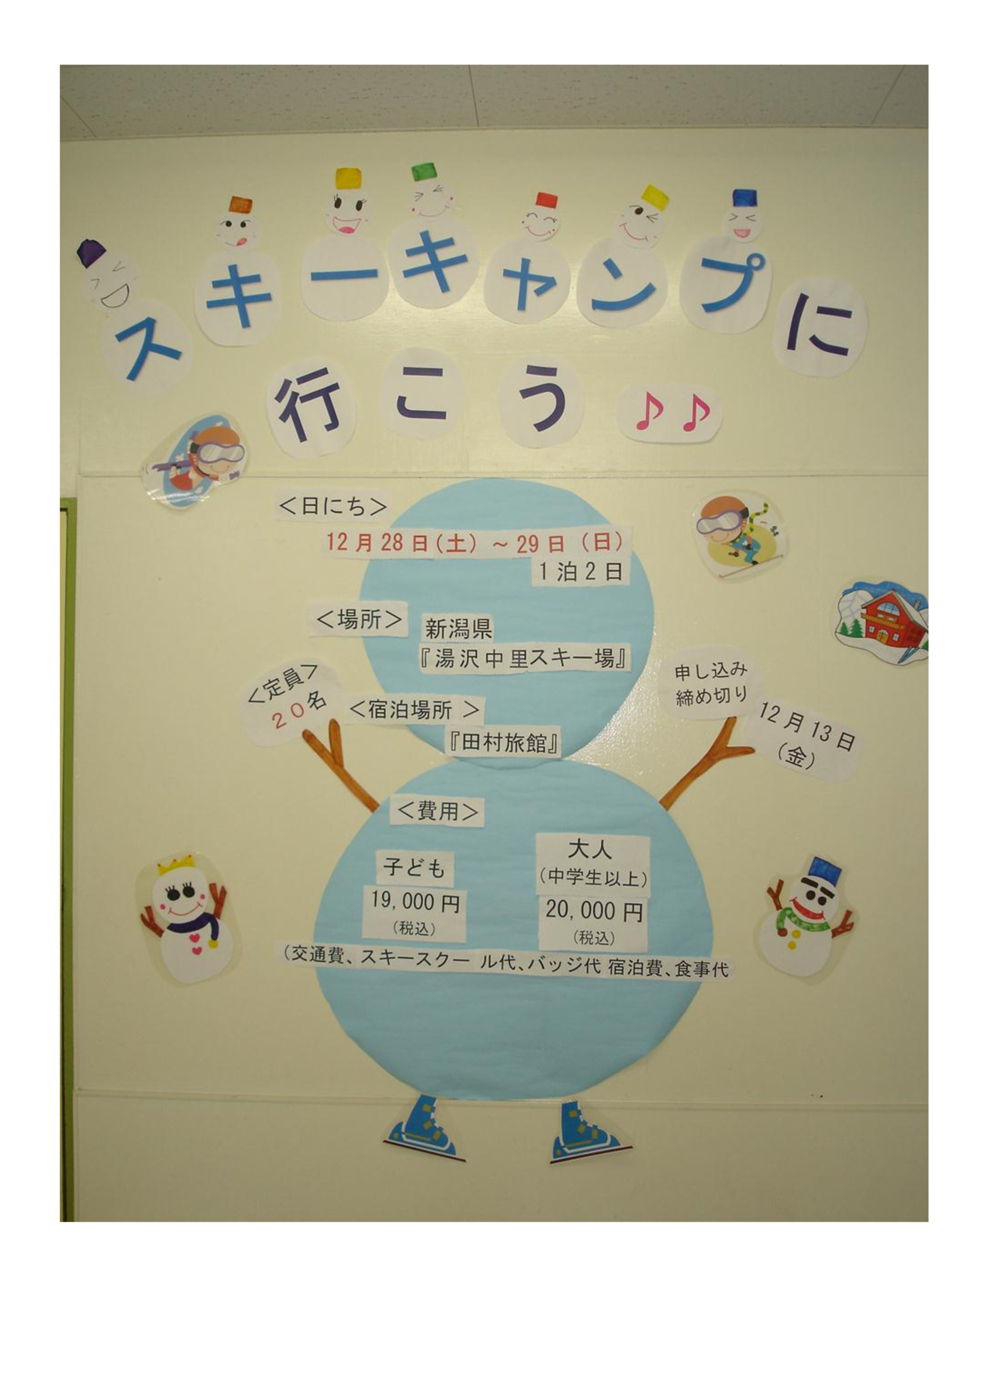 スキーキャンプに
行こう♪♪
＜日にち＞
12月28日(土) ～29日 (日)
1泊2日
＜場所＞
新潟県
『湯沢中里スキー場』
＜定員＞
20名
＜宿泊場所 ＞
『田村旅館』
申し込み
締め切り
12月13日
(金)
＜費用＞
子ども
19,000円
(税込)
大人
(中学生以上)
20,000円
(税込)
(交通費、スキースクー ル代、バッジ代 宿泊費、食事代